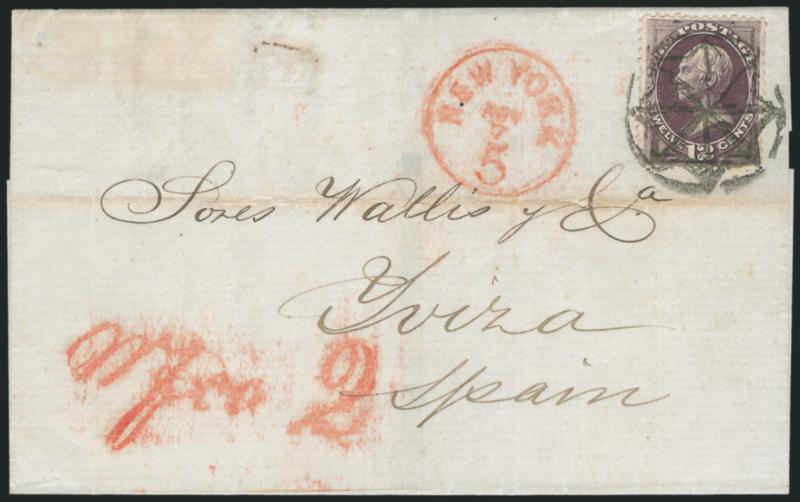 U.S. POSTAGE
TWELVE 12 CENTS
NEW YORK
5
Sores Wallis y Ca
Yviza
Spain
Wfra 2